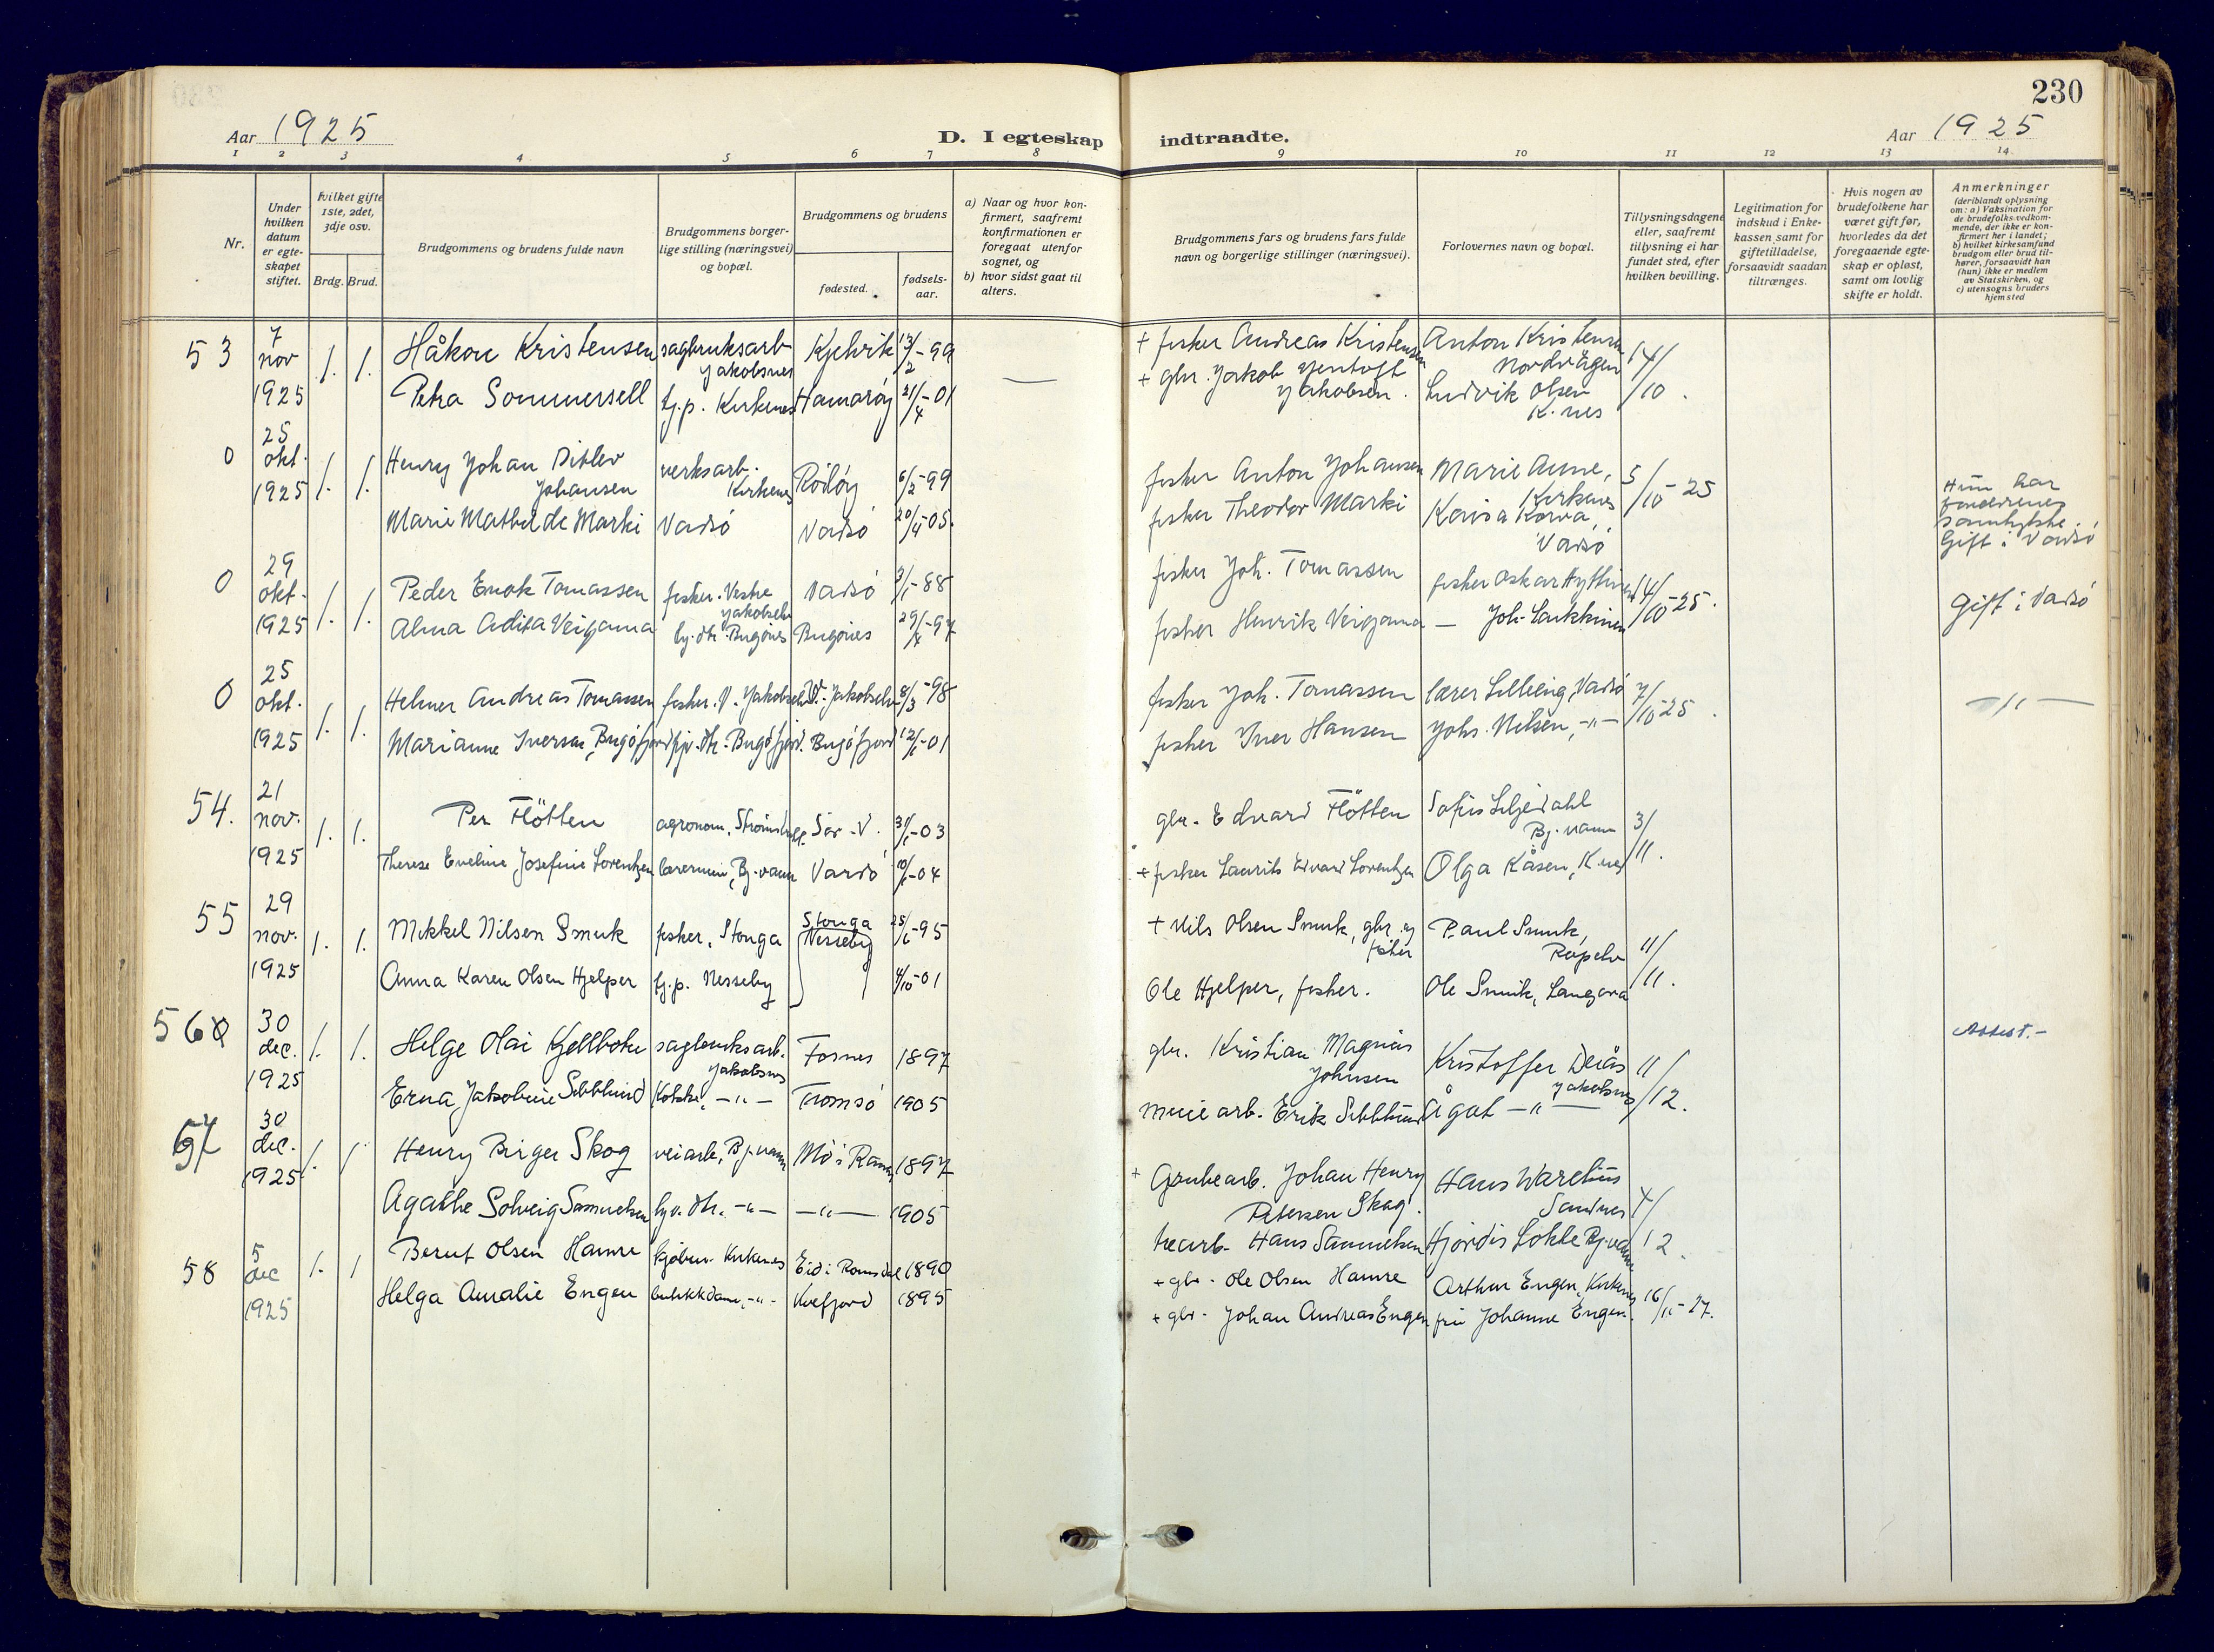 230
Aar 1925
D. I egteskap indtraadte.
Aar 1925
1 2 3 4 5 6 7 8 9 10 11 12 13 14
Nr.
Under hvilken datum er egteskapet stiftet.
Hvilket gifte 1ste, 2det, 3dje osv.
Brdg. Brud.
Brudgommens og brudens fulde navn
Brudgommens borgerlige stilling (næringsvei) og bopæl.
Brudgommens og brudens
fødested.
fødselsaar.
a) Naar og hvor konfirmert, saafremt konfirmationen er foregaat utenfor sognet, og
b) hvor sidst gaat til alters.
Brudgommens fars og brudens fars fulde navn og borgerlige stillinger (næringsvei).
Forlovernes navn og bopæl.
Tillysningsdagene eller, saafremt tillysning ei har fundet sted, efter hvilken bevilling.
Legitimation for indskud i Enkekassen samt for giftetilladelse, forsaavidt saadan tiltrænges.
Hvis nogen av brudefolkene har været gift før, hvorledes da det foregaaende egteskap er opløst, samt om lovlig skifte er holdt.
Anmerkninger
(deriblandt oplysning om: a) Vaksination for de brudefolks vedkommende, der ikke er konfirmert her i landet; b) hvilket kirkesamfund brudgom eller brud tilhører, forsaavidt han (hun) ikke er medlem av Statskirken, og c) utensogns bruders hjemsted
53 7 nov 1925 1. 1. Håkon Kristensen sagbruksarb Jakobsnes Kjelvik 13/2-99 — + fisker Andreas Kristensen Anton Kristensen Nordvågen 14/10.
Petra Sommersell tj.p. Kirkenes Hamarøy 21/4-01 + gbr. Jakob Jentoft Jakobsen. Ludvik Olsen K.nes
0 25 okt. 1925 1. 1. Henry Johan Ditlev Johansen verksarb. Kirkenes Rödöy 6/2-99 fisker Anton Johansen Marie Aune, Kirkenes 5/10-25
Marie Mathilde Marki Vadsö Vadsö 20/4-05. fisker Theodor Marki Kaisa Korva, Vadsö
Hun har forældrenes samtykke. Gift i Vadsö
0 29 okt. 1925 1. 1. Peder Enok Tomassen fisker. Vestre Jakobselv Vadsö 3/1-88 fisker Joh. Tomassen fisker Oskar 14/10-25.
Alma Adita bj. dtr. Bugöines Bugöines 29/4-97 fisker Henrik — Joh. Gift i Vadsö
0 25 okt. 1925 1. 1. Helmer Andreas Tomassen fisker. V. Jakobselv V. Jakobselv 8/3-98 fisker Joh. Tomassen lærer Lilleeng, Vadsö 7/10-25.
Marianne Iversen, Bugöfjord fjv. dtr. Bugöfjord. Bugöfjord 12/1-01 fisker Iver Hansen Johs. Nilsen, -"- —"—
54. 21 nov. 1925 1. 1. Per Flötten agronom, Sör-V. 31/1-03 gbr. Edvard Flötten Sofus Liljedahl Bj.vann 3/11.
Therese Eveline Josefine Lorentzen lærerinne, Bj.vann Vardö 10/1-04 + fisker Laurits Edvard Lorentzen Olga Kåsen, K.nes
55 29 nov. 1925 1. 1. Mikkel Nilsen Smuk fisker, Stonga Stonga Nesseby 25/6-95 + Nils Olsen Smuk, gbr. og fisker Paul Smuk, Ropelv 11/11.
Anna Karen Olsen Hjelper tj.p. Nesseby 4/10-01 Ole Hjelper, fisker. Ole Smuk,
56 30 dec. 1925 1. 1. Helge Olai Kjellbotn sagbruksarb. Jakobsnes Fosnes 1897 gbr. Kristian Magnus Johnsen Kristoffer Jakobsnes 11/12. Attest.-
Erna Jakobine Sebblund kokke, -"- Tromsö 1905 minearb. Erik Sebblund Ågot —"—
57 30 dec. 1925 1. 1 Henry Birger Skog veiarb., Bj.vann Mo i Rana 1897 + Grubearb. Johan Henry Petersen Skog. Hans Warelius Sandnes 4/12.
Agathe Solveig Samuelsen hj.v. dtr. -"- —"— 1905 Hans Samuelsen Hjördis Lökke Bj.vann
58 5 dec 1925 1. 1 Berut Olsen Hamre kjöbm. Kirkenes Eid i Romsdal 1890 + gbr. Ole Olsen Hamre Arthur Engen, Kirkenes 16/11-27.
Helga Amalie Engen butikkdame, -"- Kvefjord 1895 + gbr. Johan Andreas Engen fru Johanne Engen.